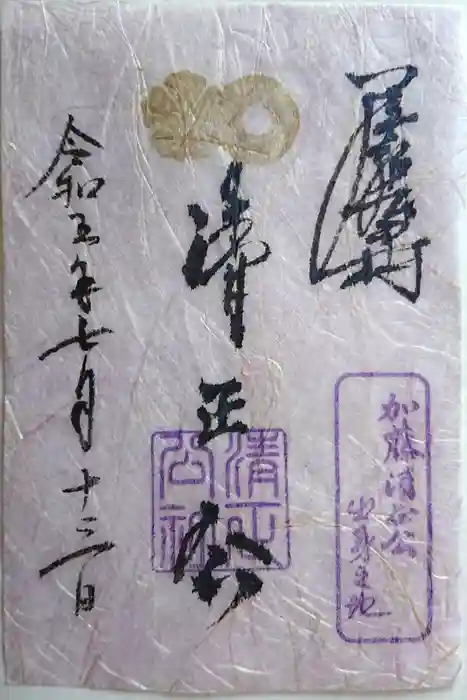 清正公
加藤清正公
出身之地
清正
令和五年七月十三日